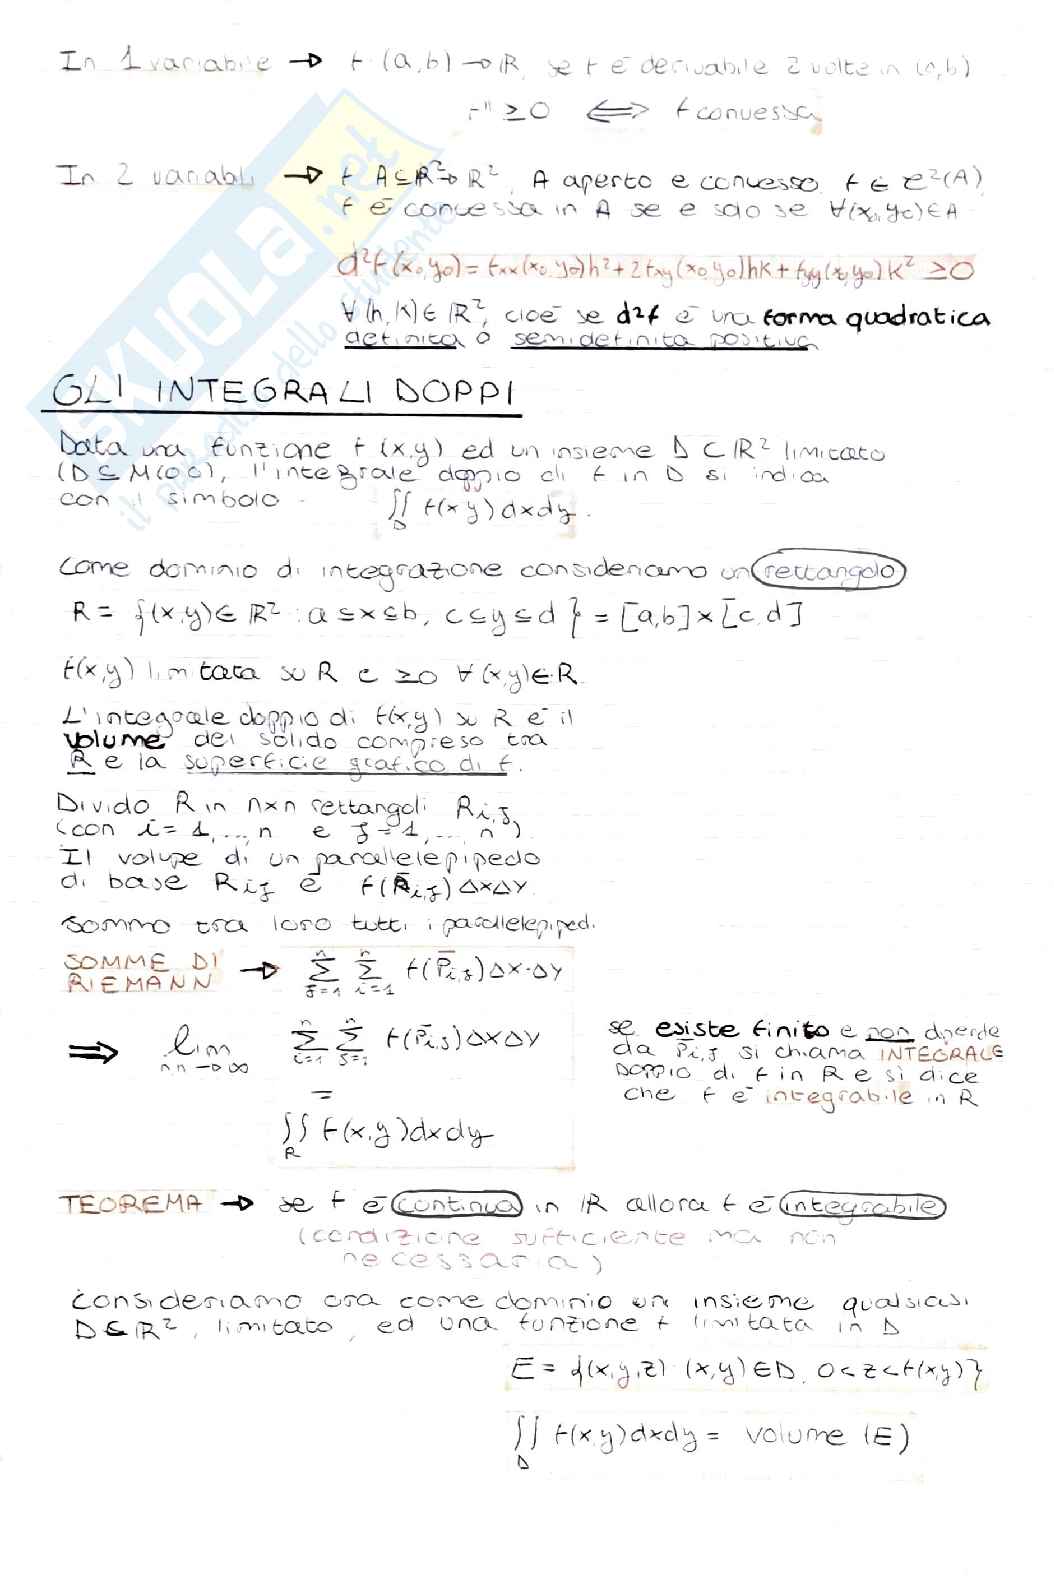 In 1 variabile → f (a,b) → ℝ, se f è derivabile 2 volte in (a,b)
f" ≥0 ⟺ f convessa
In 2 variabili → f A⊆ℝ²→ℝ², A aperto e convesso, f ∈ C²(A)
f è convessa in A se e solo se ∀(x₀,y₀)∈A
d²f(x₀,y₀) = fxx(x₀,y₀)h²+2fxy(x₀,y₀)hk+fyy(x₀,y₀)k² ≥0
∀(h,k)∈ℝ², cioè se d²f è una forma quadratica
definita o semidefinita positiva
GLI INTEGRALI DOPPI
Data una funzione f (x,y) ed un insieme D⊂ℝ² limitato
(D⊆M(0,δ)), l'integrale doppio di f in D si indica
con il simbolo ∬D f(x,y)dxdy.
Come dominio di integrazione consideriamo un rettangolo
R = {(x,y)∈ℝ² : a≤x≤b, c≤y≤d} = [a,b]×[c,d]
f(x,y) limitata su R e ≥0 ∀(x,y)∈R.
L'integrale doppio di f(x,y) su R è il
volume del solido compreso tra
R e la superficie grafico di f.
Divido R in n×n rettangoli Ri,j
(con i=1,...,n e j=1,...,n)
Il volupe di un parallelepipedo
di base Rij è f(P̄i,j)ΔxΔy.
Sommo tra loro tutti i parallelepipedi.
SOMME DI
RIEMANN → ∑ⁿj=1 ∑ⁿi=1 f(P̄i,j)Δx·Δy
⇒ lim nn→∞ ∑ⁿi=1 ∑ⁿj=i f(P̄i,j)ΔxΔy
=
∬R f(x,y)dxdy
se esiste finito e non dipende
da P̄i,j si chiama INTEGRALE
DOPPIO di f in R e si dice
che f è integrabile in R
TEOREMA → se f è continua in ℝ allora f è integrabile
(condizione sufficiente ma non
necessaria)
Consideriamo ora come dominio un insieme qualsiasi
D⊆ℝ², limitato, ed una funzione f limitata in D
E = {(x,y,z) : (x,y)∈D, 0<z<f(x,y)}
∬D f(x,y)dxdy = volume (E)
SKUOLA.net
il paradiso dello studente